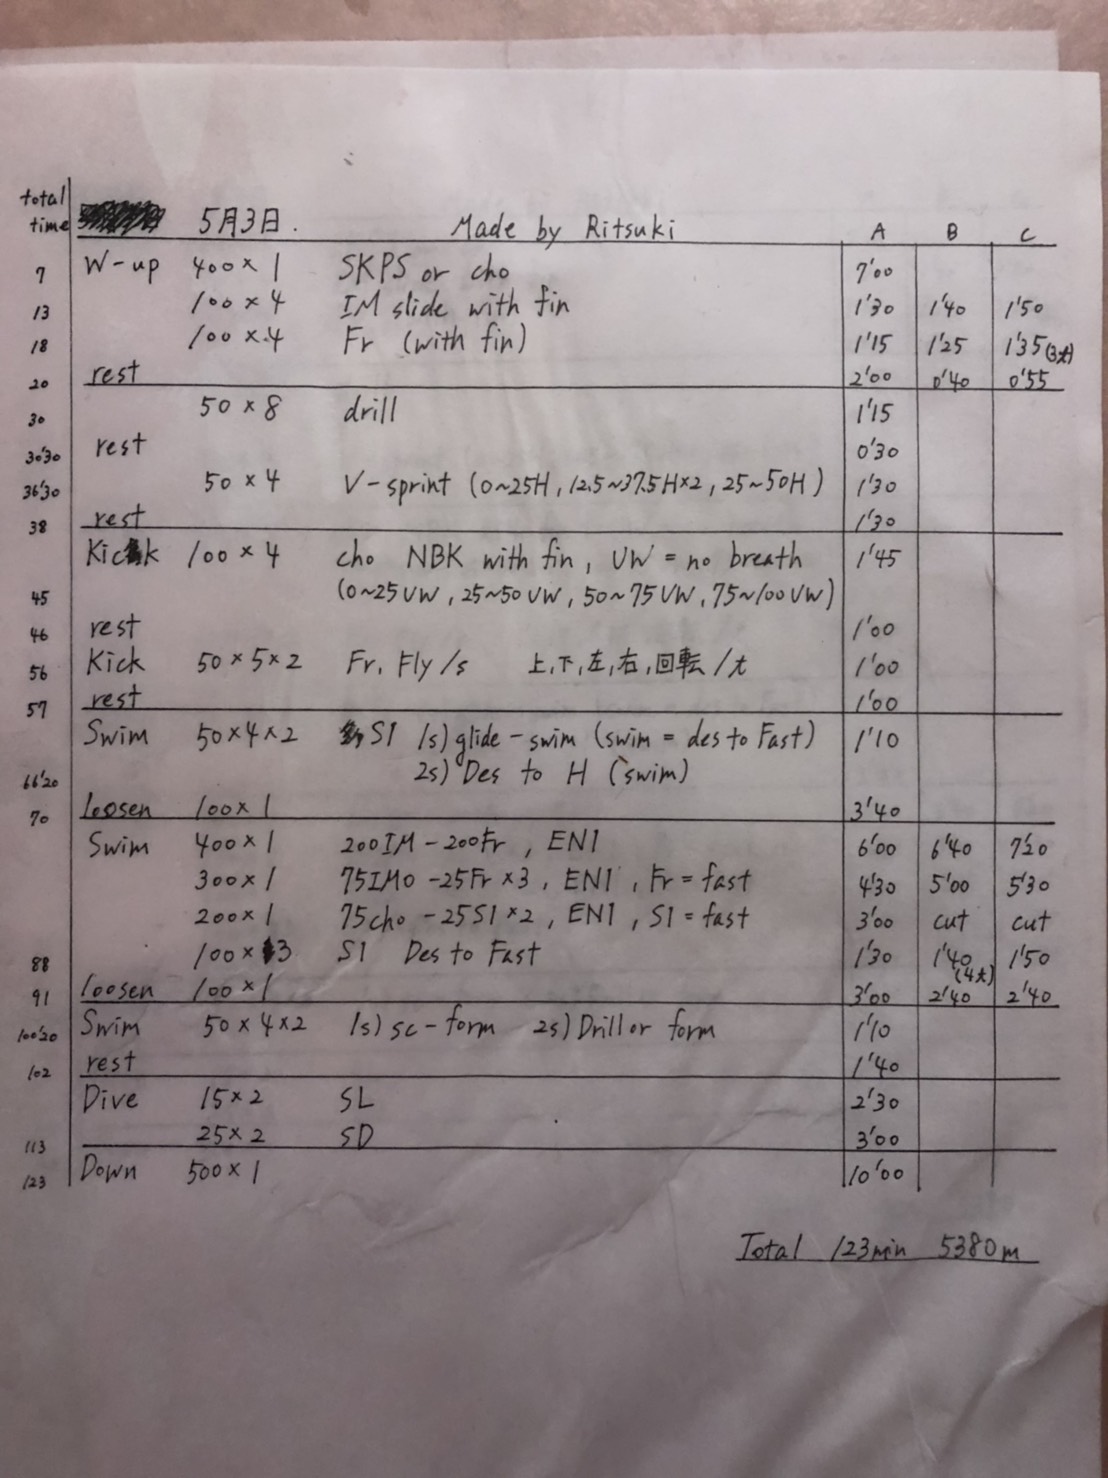 total
time 5月3日. Made by Ritsuki A B C
7 W-up 400×1 SKPS or cho 7'00
13 100×4 IM slide with fin 1'30 1'40 1'50
18 100×4 Fr (with fin) 1'15 1'25 1'35(3大)
20 rest 2'00 0'40 0'55
30 50×8 drill 1'15
30'30 rest 0'30
36'30 50×4 V-sprint (0~25H, 12.5~37.5H×2, 25~50H) 1'30
38 rest 1'30
Kick 100×4 cho NBK with fin, UW = no breath 1'45
45 (0~25UW, 25~50UW, 50~75UW, 75~100UW)
46 rest 1'00
56 Kick 50×5×2 Fr, Fly/s 上,下,左,右,回転/t 1'00
57 rest 1'00
Swim 50×4×2 S1 1s) glide-swim (swim = des to Fast) 1'10
66'20 2s) Des to H (swim)
70 loosen 100×1 3'40
Swim 400×1 200IM-200Fr, EN1 6'00 6'40 7'20
300×1 75IMO-25Fr×3, EN1, Fr=fast 4'30 5'00 5'30
200×1 75cho-25S1×2, EN1, S1=fast 3'00 cut cut
88 100×3 S1 Des to Fast 1'30 1'40 (4大) 1'50
91 loosen 100×1 3'00 2'40 2'40
100'20 Swim 50×4×2 1s) sc-form 2s) Drill or form 1'10
102 rest 1'40
Dive 15×2 SL 2'30
113 25×2 SD 3'00
123 Down 500×1 10'00
Total 123min 5380m